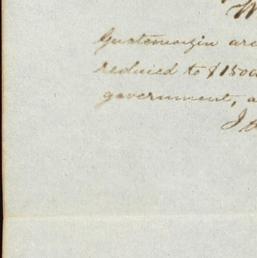 W
Guatemozin are
reduced to $1500
government, a